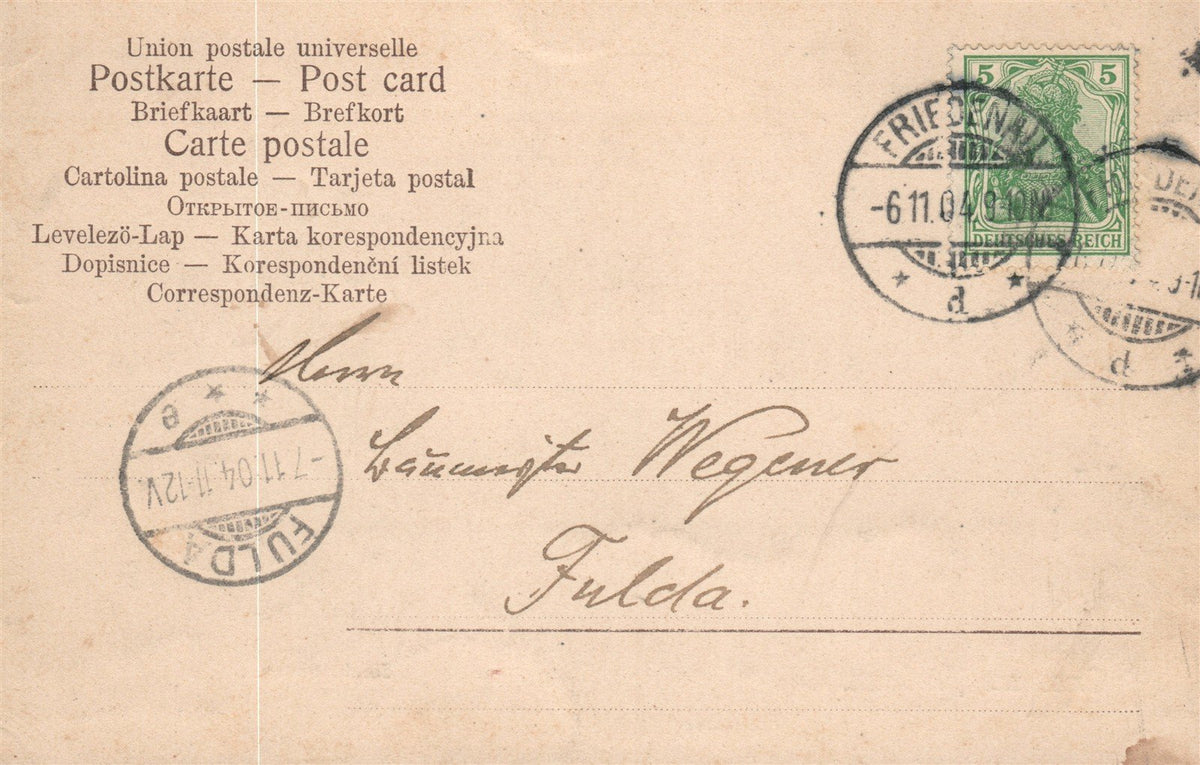 Union postale universelle
Postkarte — Post card
Briefkaart — Brefkort
Carte postale
Cartolina postale — Tarjeta postal
Открытое-письмо
Levelezö-Lap — Karta korespondencyjna
Dopisnice — Korespondenční listek
Correspondenz-Karte
5 5
DEUTSCHES REICH
FRIEDENAU
-6.11.04.9-10N.
d
d
Herrn
Baumeister Wegener
Fulda.
e
-7.11.04.11-12V.
FULDA